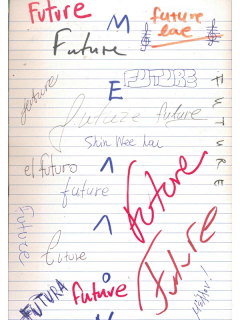 Future
future
lae
Future
FUTURE
future
future
future
FUTURE
Shin Wee Lau
el futuro
future
Future
Future
future
Future
FUTURA
future